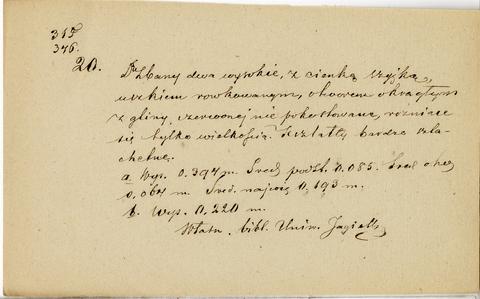 315
376.
20. Dzbany dwa wysokie, z cienką szyjką,
uszkiem rowkowanym, otworem okrągłym
z gliny czerwonej nie pokostowane, różniące
się tylko wielkością. Kształty bardzo szla-
chetne.
a Wys. 0.397 m. Śred. podst. 0.085. Śred. otw.
0.064 m. Śred. najwię. 0,193 m.
b. Wys. 0.220 m.
Własn. bibl. Uniw. Jagiell.